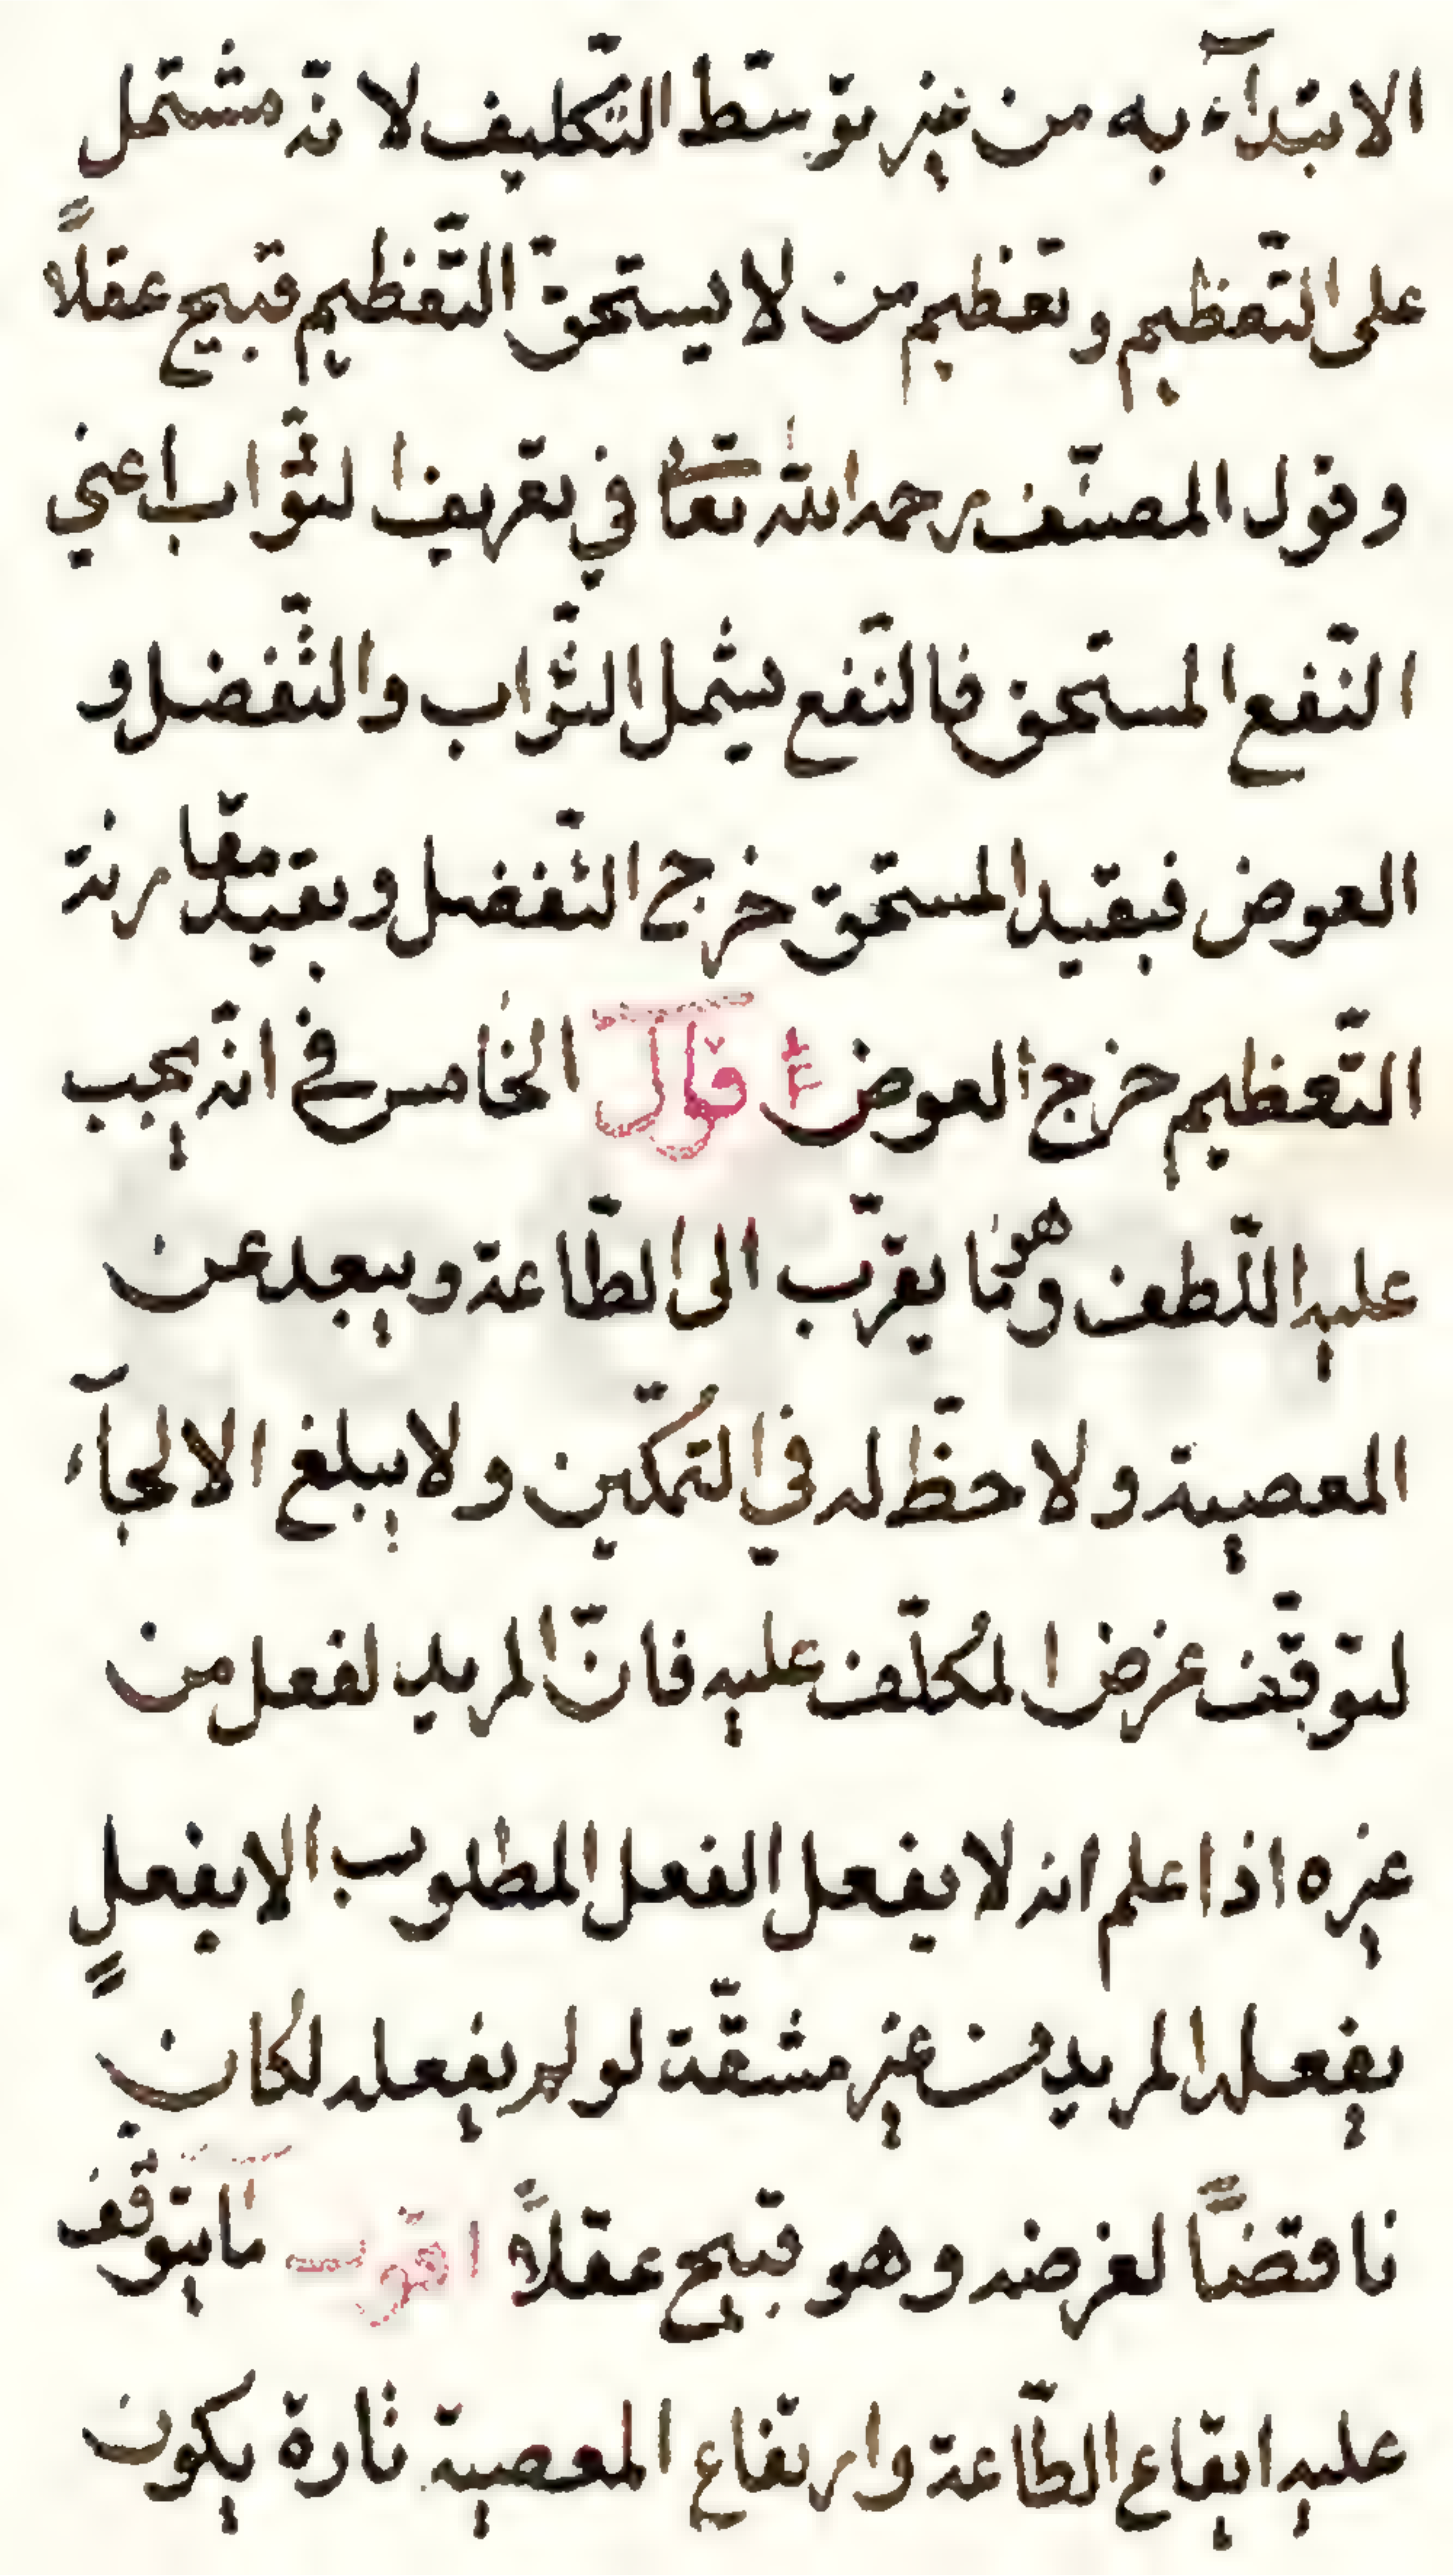 الابتدآء به من غير توسّط التّكليف لا نّه مشتمل
على التّعظيم وتعظيم من لا يستحقّ التّعظيم قبيح عقلاً
وقول المصنّف رحمه الله تعا في تعريف الثّواب اعني
النّفع المستحق فالنّفع يشمل الثّواب والتّفضل و
العوض فبقيد المستحق خرج التّفضل وبقيد مقارنة
التّعظيم خرج العوض قال الخامس في انّه يجب
عليه اللّطف وهو ما يقرّب الى الطّاعة ويبعد عن
المعصية ولا حظّ له في التمكّين ولا يبلغ الالجآء
لتوقّف غرض المُكلّف عليه فانّ المريد لفعل من
غيره اذا علم انه لا يفعل الفعل المطلوب الا بفعلٍ
يفعله المريد من غير مشقّة لو لم يفعله لكان
ناقضاً لغرضه وهو قبيح عقلاً اقول ما يتوقّف
عليه ايقاع الطّاعة وارتفاع المعصية تارة يكون